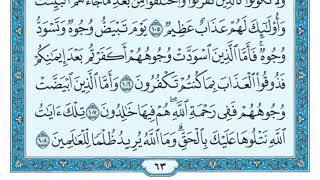 وَلَا تَكُونُوا۟ كَٱلَّذِينَ تَفَرَّقُوا۟ وَٱخْتَلَفُوا۟ مِنۢ بَعْدِ مَا جَآءَهُمُ ٱلْبَيِّنَٰتُ
وَأُو۟لَٰٓئِكَ لَهُمْ عَذَابٌ عَظِيمٌ ١٠٥ يَوْمَ تَبْيَضُّ وُجُوهٌ وَتَسْوَدُّ
وُجُوهٌ فَأَمَّا ٱلَّذِينَ ٱسْوَدَّتْ وُجُوهُهُمْ أَكَفَرْتُم بَعْدَ إِيمَٰنِكُمْ
فَذُوقُوا۟ ٱلْعَذَابَ بِمَا كُنتُمْ تَكْفُرُونَ ١٠٦ وَأَمَّا ٱلَّذِينَ ٱبْيَضَّتْ
وُجُوهُهُمْ فَفِى رَحْمَةِ ٱللَّهِ هُمْ فِيهَا خَٰلِدُونَ ١٠٧ تِلْكَ ءَايَٰتُ
ٱللَّهِ نَتْلُوهَا عَلَيْكَ بِٱلْحَقِّ وَمَا ٱللَّهُ يُرِيدُ ظُلْمًا لِّلْعَٰلَمِينَ ١٠٨
٦٣